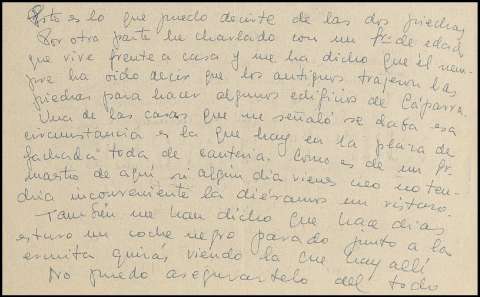 Esto es lo que puedo decirte de las dos piedras
Por otra parte he charlado con un Sr. de edad
que vive frente a casa y me ha dicho que él siem-
pre ha oido decir que los antiguos trajeron las
piedras para hacer algunos edificios de Cáparra.
Una de las casas que me señaló se daba esa
circunstancia es la que hay en la plaza de
fachada toda de cantería. Como es de un
maestro de aquí si algún dia vienes creo no ten-
dria inconveniente la diéramos un vistazo.
También me han dicho que hace dias
estuvo un coche negro parado junto a la
ermita quizás viendo la que hay allí
No puedo asegurartelo del todo